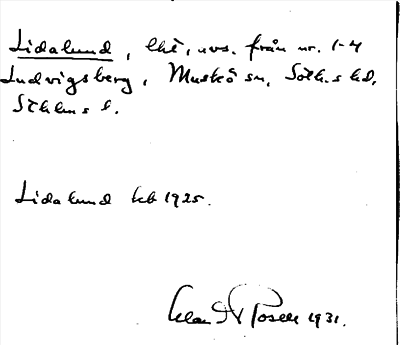 Lidalund, lht, avs. från nr. 1-4
Ludvigsberg, Muskö sn, Soth.s hd,
Sthlms l.
Lidalund kb 1925.
1931.